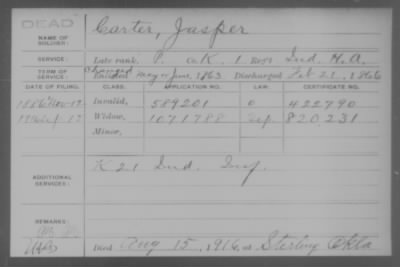 DEAD
NAME OF SOLDIER: Carter, Jasper
SERVICE: Late rank, P. Co. K, 1 Reg't Ind. H.A.
TERM OF SERVICE: Changed Enlisted may or June, 1863. Discharged Feb 21, 1866
DATE OF FILING. CLASS. APPLICATION NO. LAW. CERTIFICATE NO.
1886 Nov 12 Invalid, 589201 G 422790
1916 12 Widow, 1071788 820,231
Minor,
ADDITIONAL SERVICES: K 21 Ind. Inf.
REMARKS:
Died Aug 15, 1916, at Sterling Okla